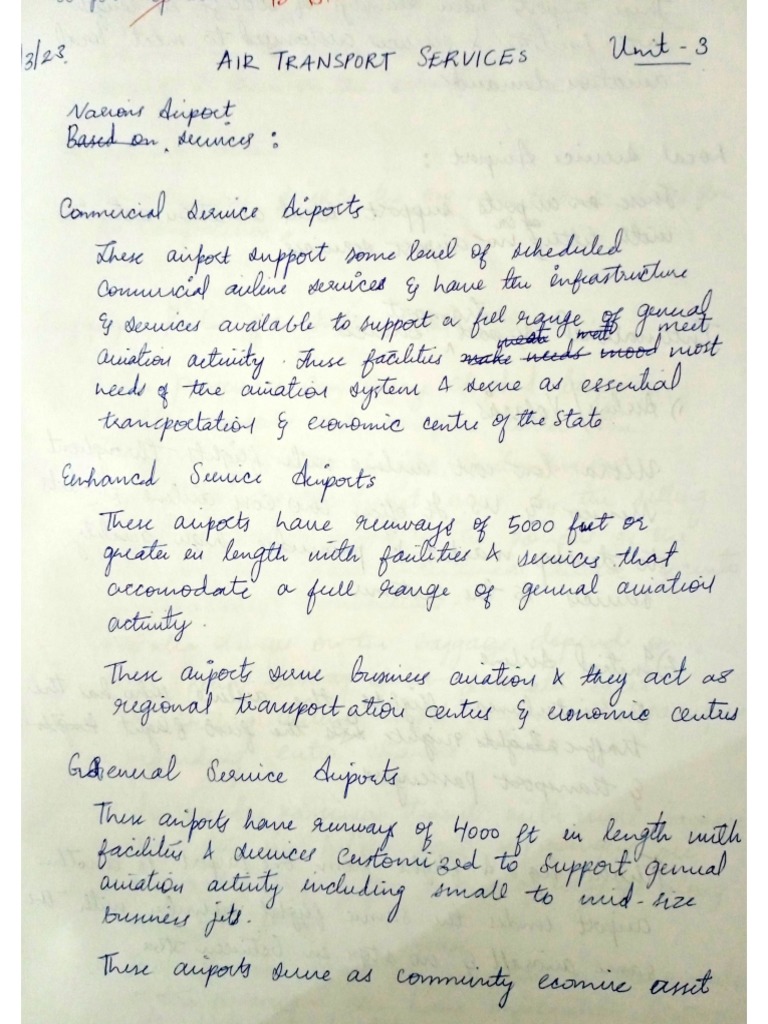 3/23. AIR TRANSPORT SERVICES Unit - 3
Various Airport
Based on services :
Commercial Service Airports
These airport support some level of scheduled
commercial airline services & have the infrastructure
& services available to support a full range of general
aviation activity. These facilities make needs mood meet most
needs of the aviation system & serve as essential
transportation & economic centre of the State
Enhanced Service Airports
These airports have runways of 5000 feet or
greater in length with facilities & services that
accomodate a full range of general aviation
activity.
These airports serve business aviation & they act as
regional transportation centres & economic centres
General Service Airports
These airports have runways of 4000 ft in length with
facilities & services customized to support general
aviation activity including small to mid-size
business jets.
These airports serve as community ecomire asset